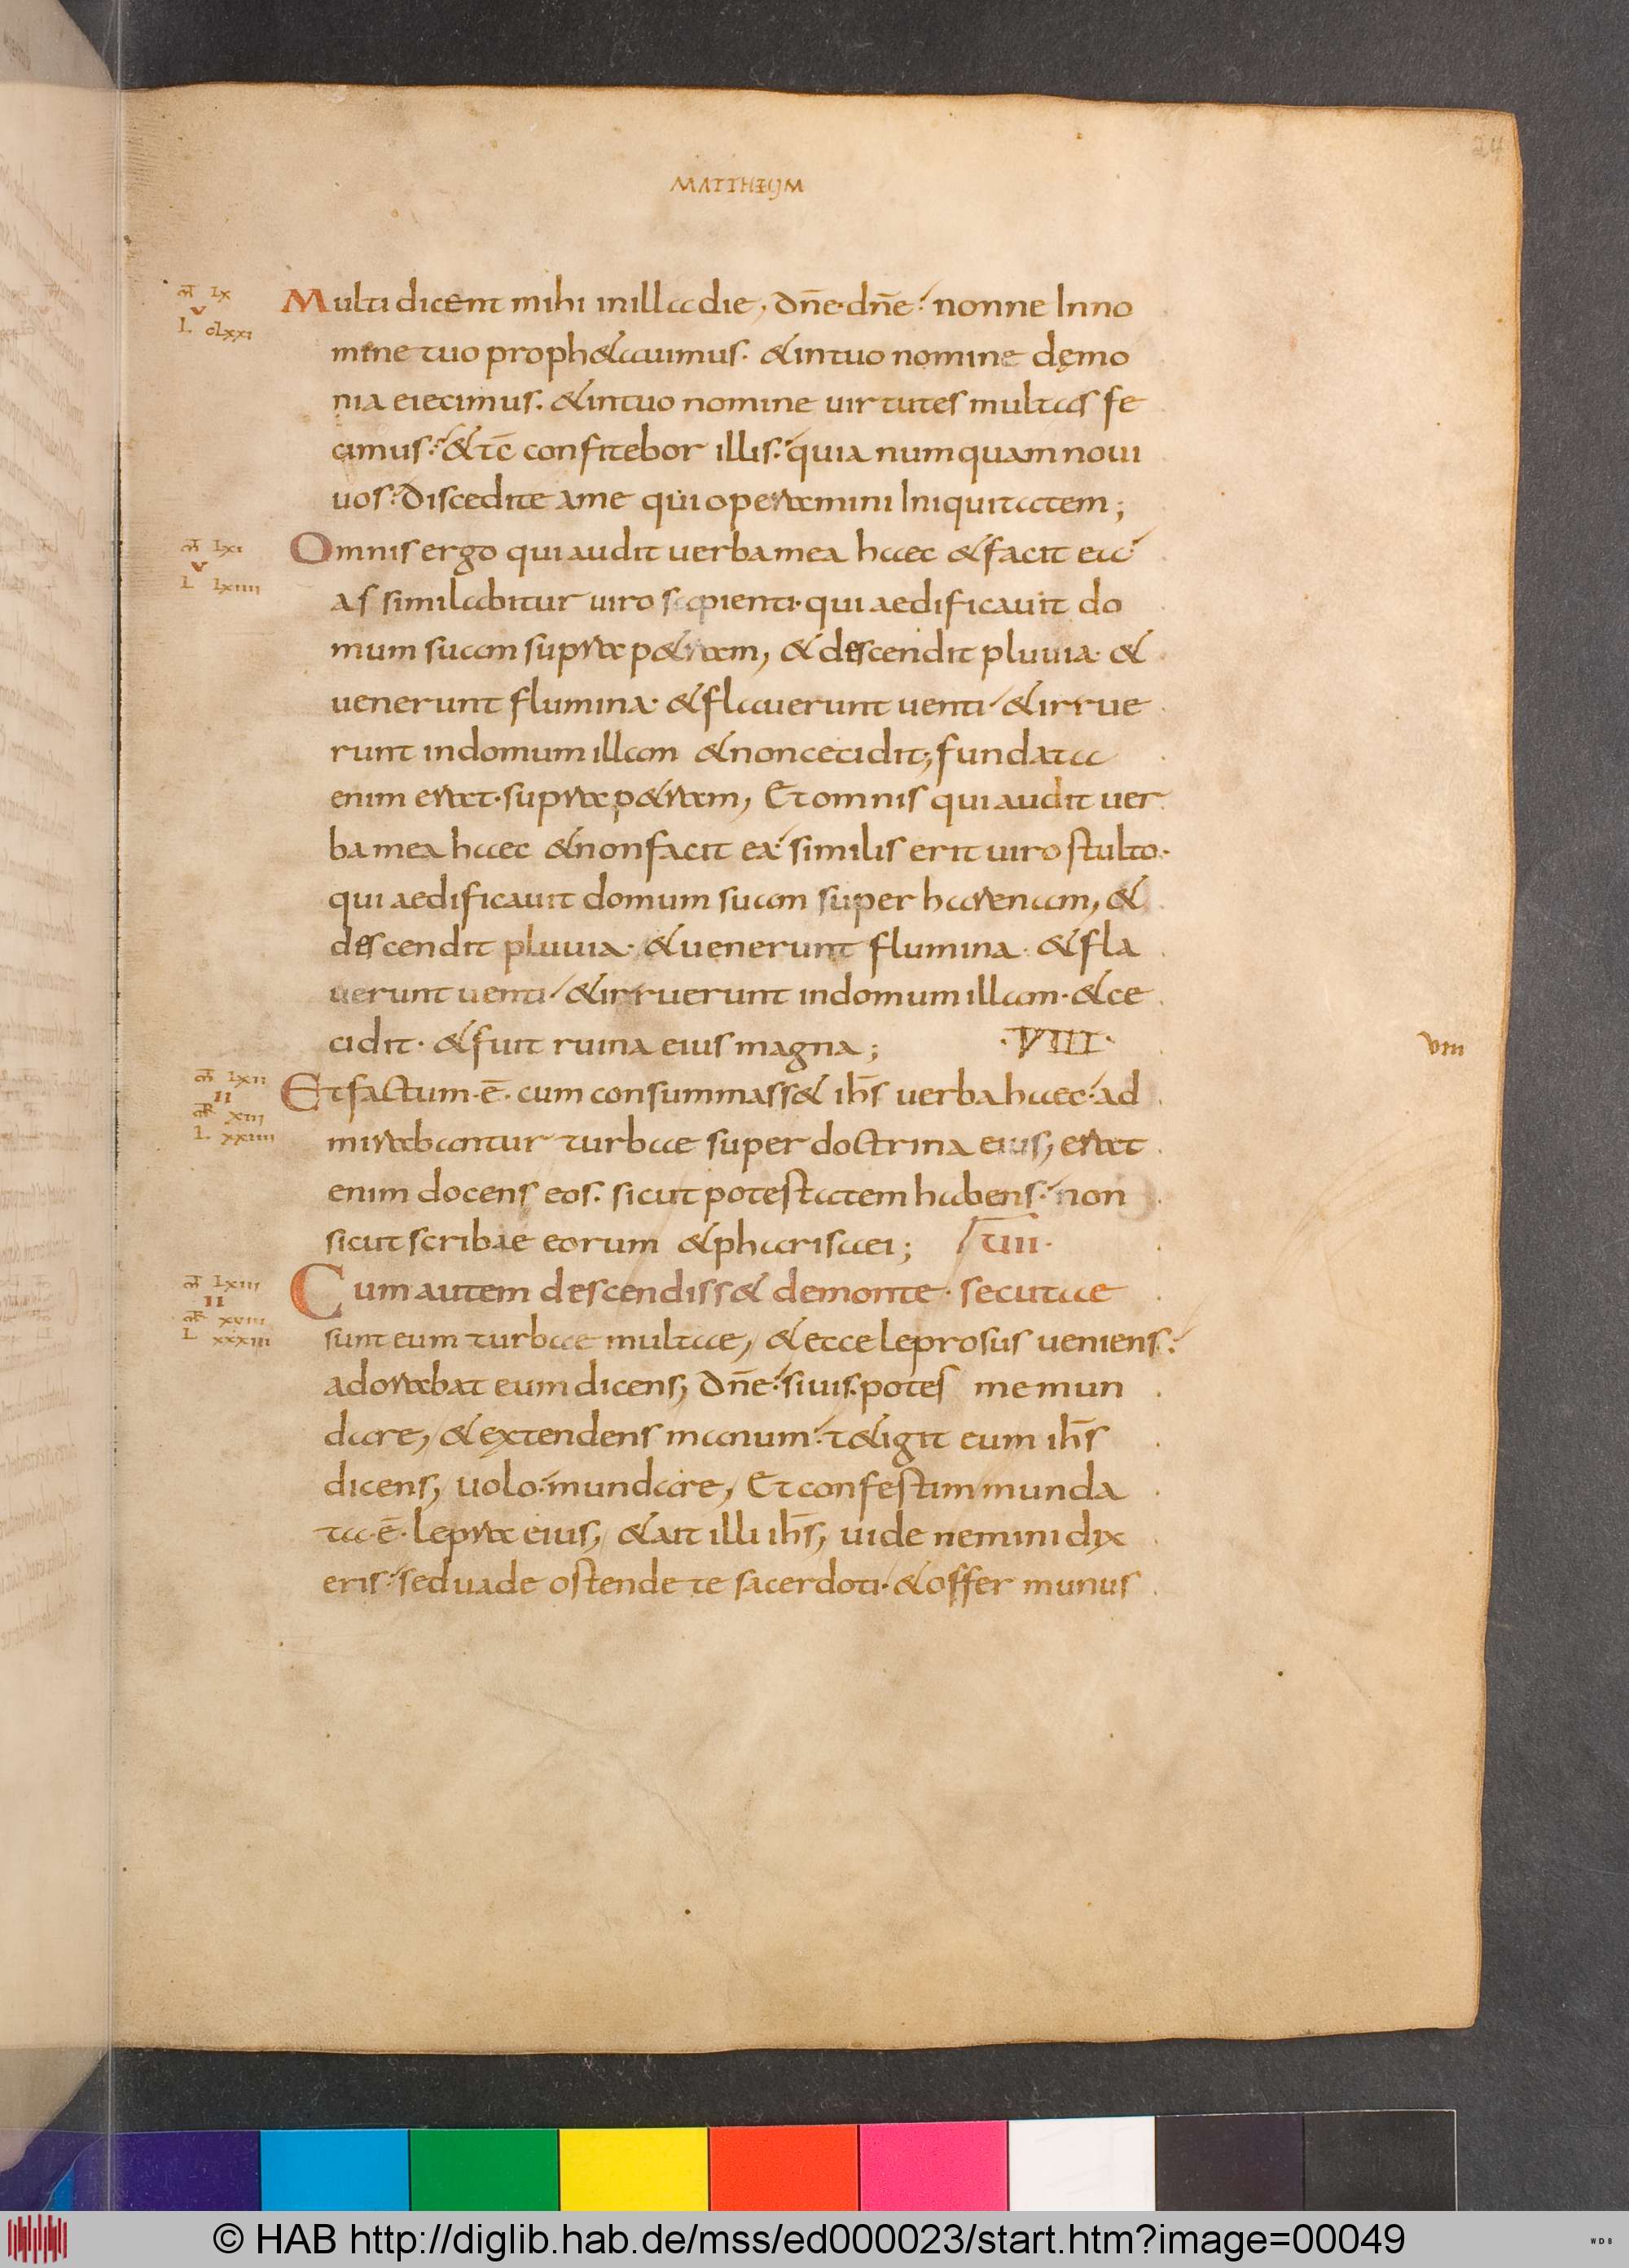 24
MATTHEUM
m̄ lx
v
L clxxi
Multi dicent mihi in illa die, dn̄e dn̄e nonne In no
mine tuo prophetauimus. & in tuo nomine dęmo
nia eiecimus. & in tuo nomine uirtutes multas fe
cimus. & tc̄ confitebor illis. quia numquam noui
uos. Discedite a me qui operamini Iniquitatem;
m̄ lxi
v
L lxiiii
Omnis ergo qui audit uerba mea haec & facit ea
as similabitur uiro sapienti. qui aedificauit do
mum suam supra p&ram, & descendit pluuia. &
uenerunt flumina. & flauerunt uenti & irrue
runt in domum illam & non cecidit; fundata
enim erat. supra p&ram, Et omnis qui audit uer
ba mea haec & non facit ea similis erit uiro stulto.
qui aedificauit domum suam super harenam, &
descendit pluuia. & uenerunt flumina. & fla
uerunt uenti & irruerunt in domum illam. & ce
cidit. & fuit ruina eius magna; ·VIII·
viii
m̄ lxii
II
m̄r xiii
L xxiiii
Et factum·ē· cum consummass& ih̄s uerba haec. ad
mirabantur turbae super doctrina eius, erat
enim docens eos. sicut potestatem habens. non
sicut scribae eorum & pharisaei;
m̄ lxiii
II
m̄r xviii
L xxxiii
Cum autem descendiss& de monte. secutae
sunt eum turbae multae, & ecce leprosus ueniens.
adorabat eum dicens, Dn̄e. si uis. potes me mun
dare, & extendens manum. t&igit eum ih̄s
dicens, uolo. mundare, Et confestim munda
ta·ē· lepra eius, & ait illi ih̄s, uide nemini dix
eris. sed uade ostende te sacerdoti. & offer munus
© HAB http://diglib.hab.de/mss/ed000023/start.htm?image=00049
WDB